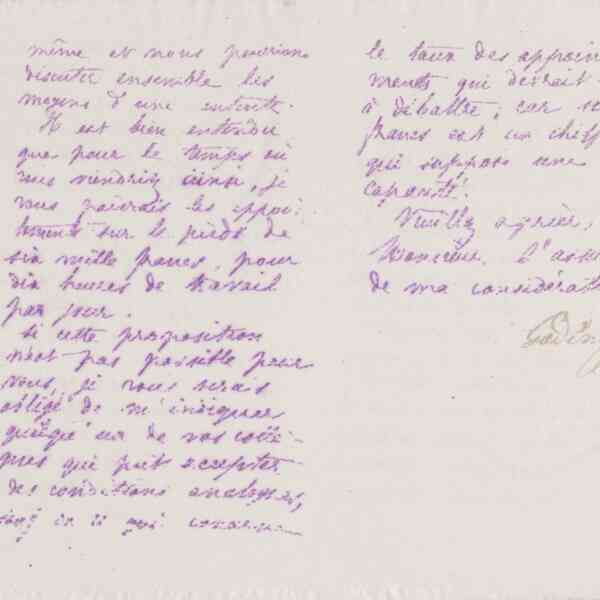 même et nous pourrions
discuter ensemble les
moyens d'une entente.
Il est bien entendu
que pour le temps où
vous viendriez ainsi, je
vous paierais les appoi-
tements sur le pieds de
six mille francs, pour
dix heures de travail
par jour.
Si cette proposition
n'est pas possible pour
vous, je vous serais
obligé de m'indiquer
quelqu'un de vos collè-
gues qui put accepter
des conditions analogues,
en ce qui concerne
le taux des appoin
ments qui devrait
à débattre, car
francs est un chiff
qui suppose une
capacité.
Veuillez agréer,
Monsieur, l'assu
de ma considérat
Godin